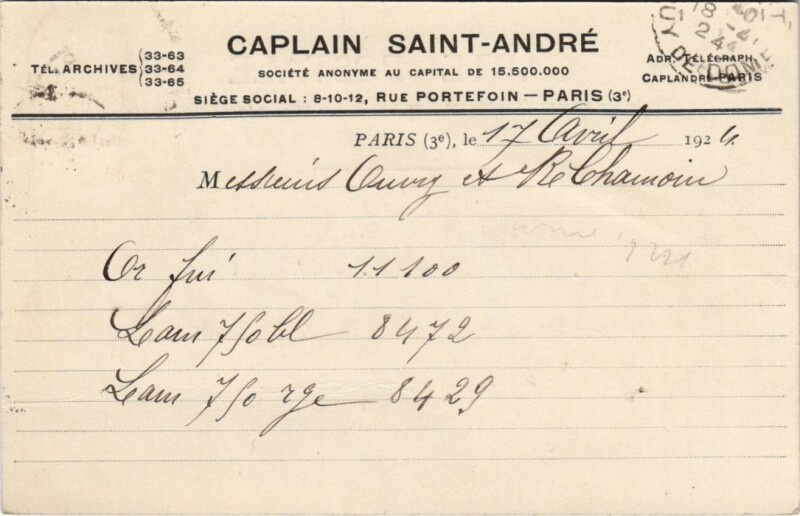 CAPLAIN SAINT-ANDRÉ
SOCIÉTÉ ANONYME AU CAPITAL DE 15.500.000
SIÈGE SOCIAL : 8-10-12, RUE PORTEFOIN — PARIS (3e)
TÉL. ARCHIVES
33-63
33-64
33-65
ADR. TÉLÉGRAPH.
CAPLANDRÉ-PARIS
PUY DE DOME
PARIS (3e), le 17 Avril 1924
Messieurs et Chamoin
Or fin 11100
Lam 750 bl 8472
Lam 750 rge 8429